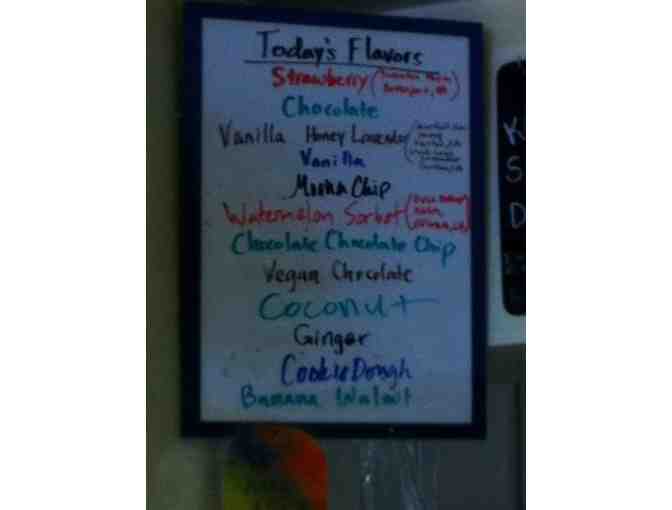 Today's Flavors
Strawberry
Chocolate
Vanilla Honey Lavender
Vanilla
Mocha Chip
Watermelon Sorbet
Chocolate Chocolate Chip
Vegan Chocolate
Coconut
Ginger
Cookie Dough
Banana Walnut
K
S
D